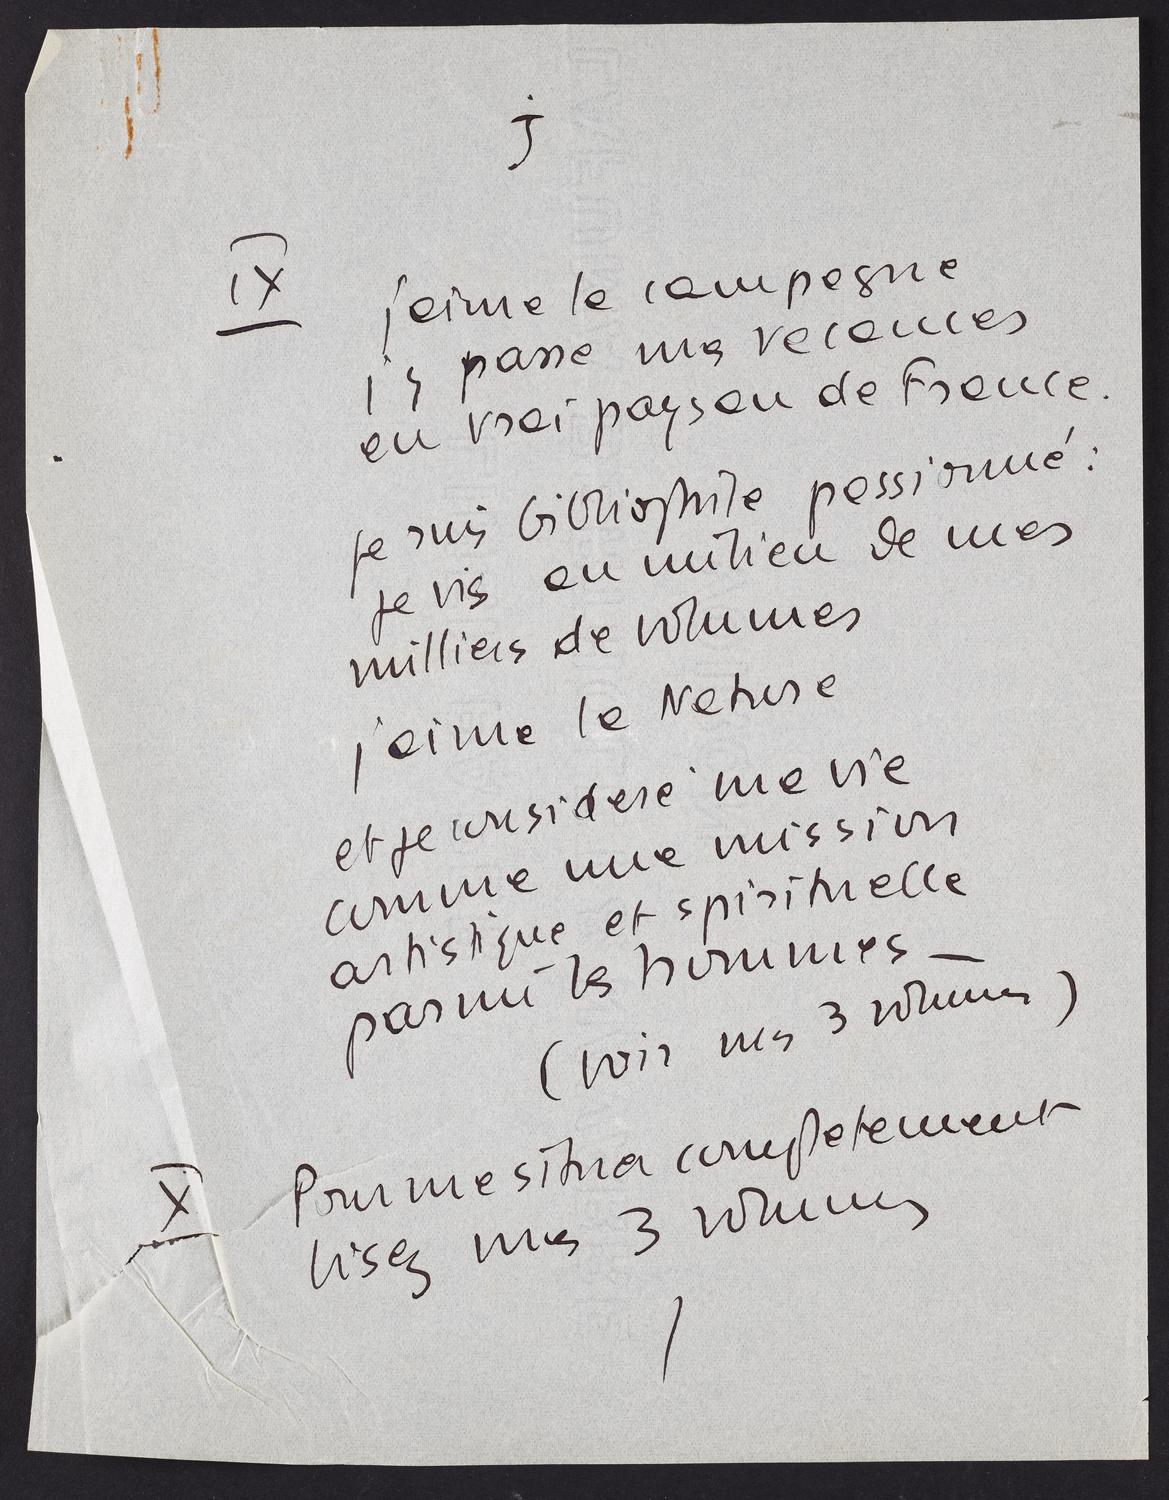 j
IX
j'aime la campagne
j'y passe mes vacances
en vrai paysan de France.
je suis bibliophile passionné :
je vis au milieu de mes
milliers de volumes
j'aime la Nature
et je considere ma vie
comme une mission
artistique et spirituelle
parmi les hommes —
(voir mes 3 volumes)
X
Pour me situer completement
lisez mes 3 volumes
/